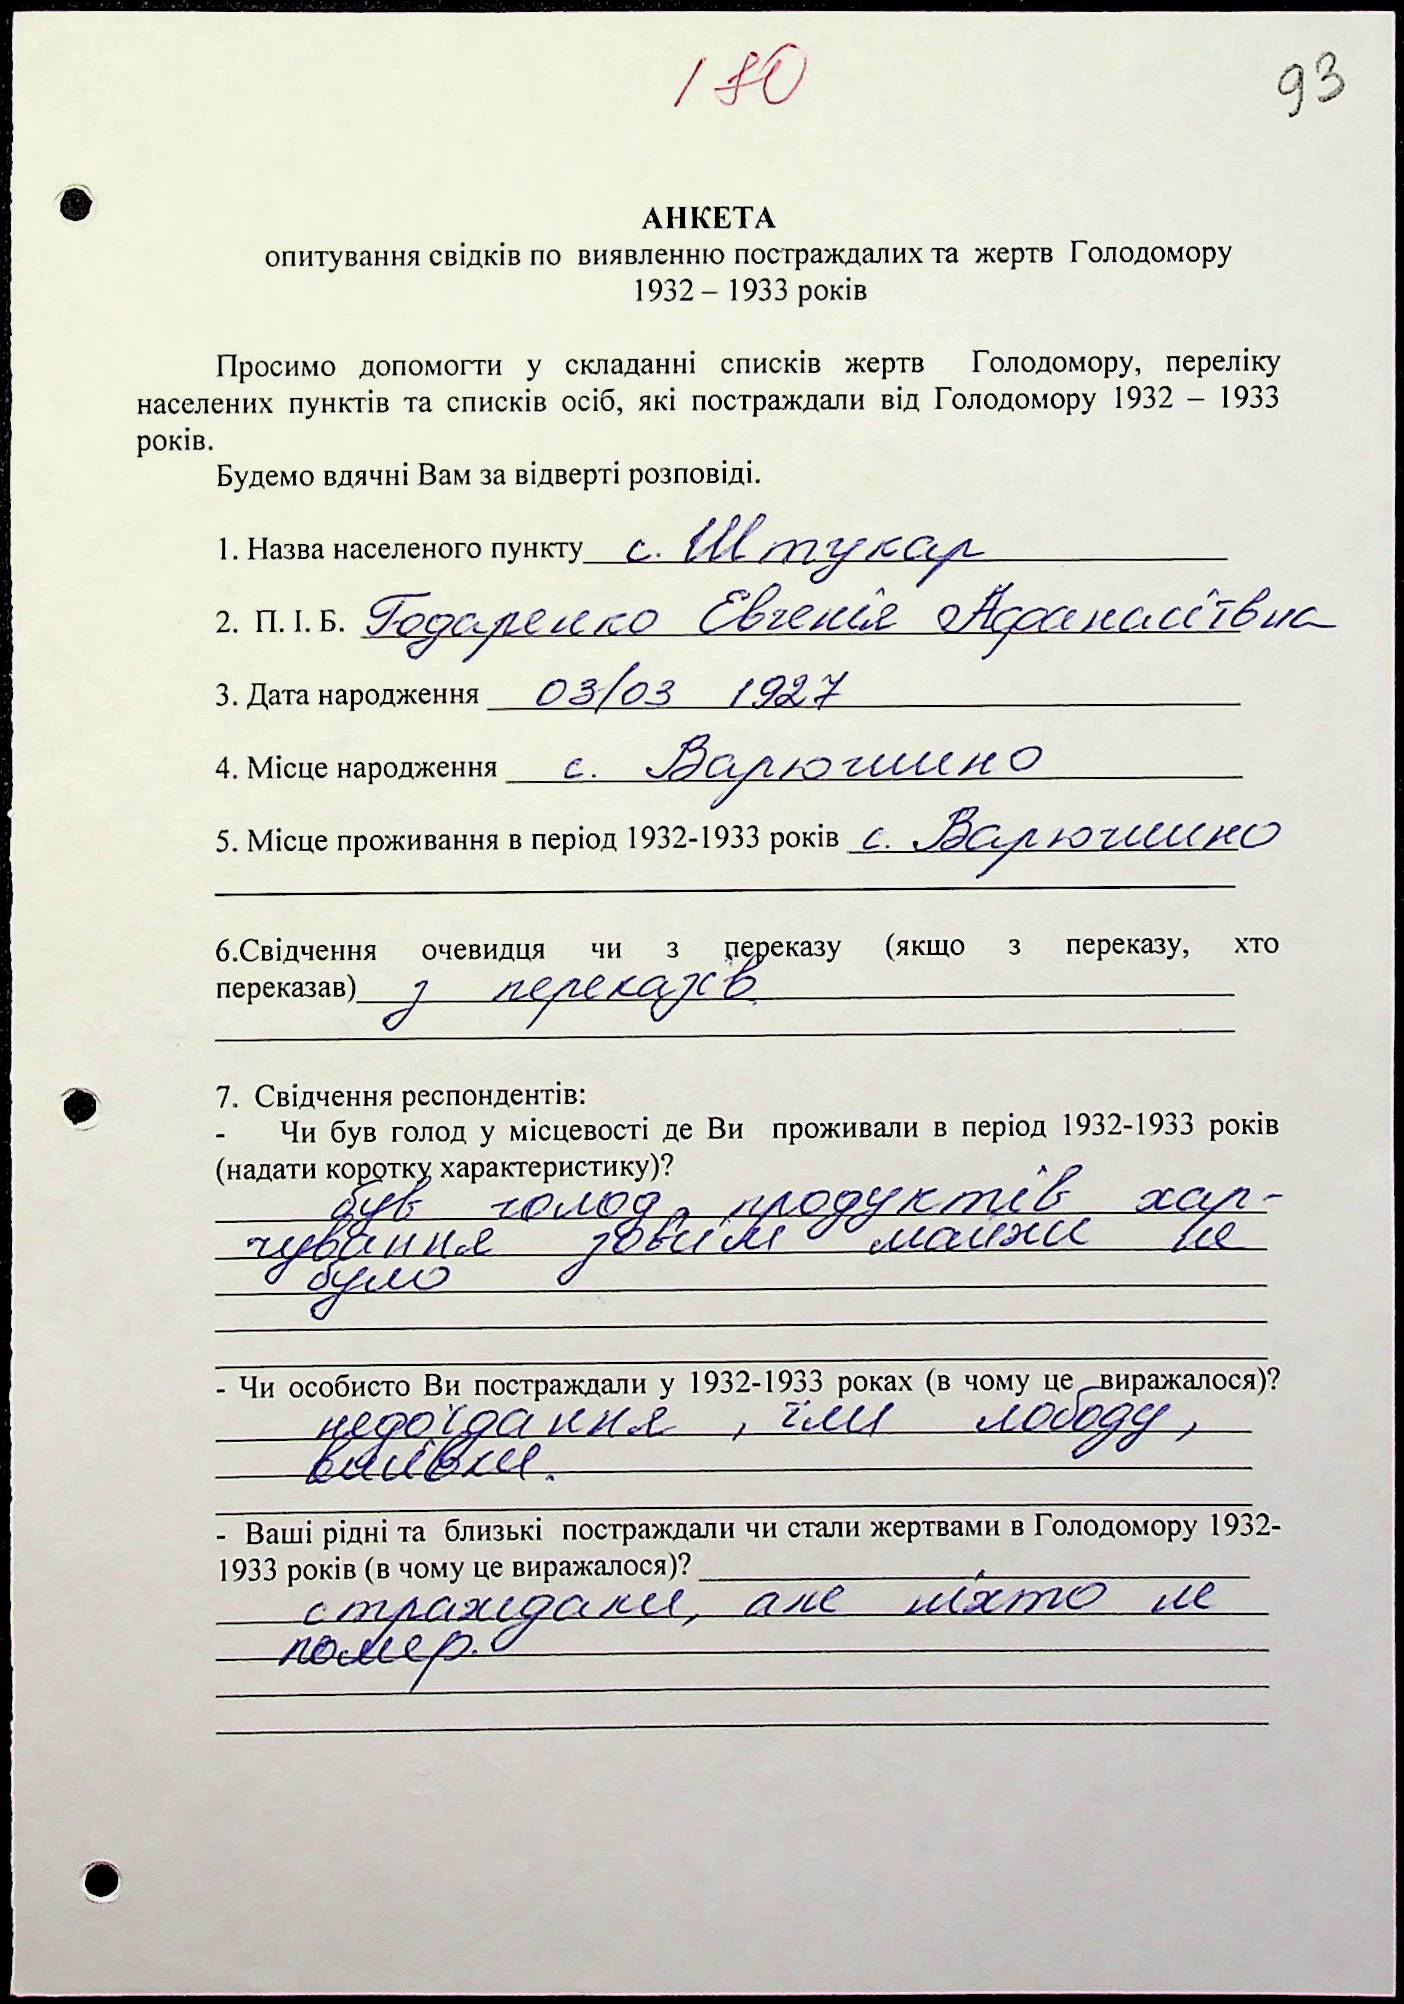 180
93
АНКЕТА
опитування свідків по виявленню постраждалих та жертв Голодомору
1932 – 1933 років
Просимо допомогти у складанні списків жертв Голодомору, переліку
населених пунктів та списків осіб, які постраждали від Голодомору 1932 – 1933
років.
Будемо вдячні Вам за відверті розповіді.
1. Назва населеного пункту с. Штукар
2. П. І. Б. Годаренко Евгенія Афанасіївна
3. Дата народження 03/03 1927
4. Місце народження с.
5. Місце проживання в період 1932-1933 років с.
6.Свідчення очевидця чи з переказу (якщо з переказу, хто
переказав) з переказів
7. Свідчення респондентів:
- Чи був голод у місцевості де Ви проживали в період 1932-1933 років
(надати коротку характеристику)?
був голод, продуктів хар-
чування зовсім майже не
було
- Чи особисто Ви постраждали у 1932-1933 роках (в чому це виражалося)?
недоїдання, їли лободу,
- Ваші рідні та близькі постраждали чи стали жертвами в Голодомору 1932-
1933 років (в чому це виражалося)?
страждали, але ніхто не
помер.